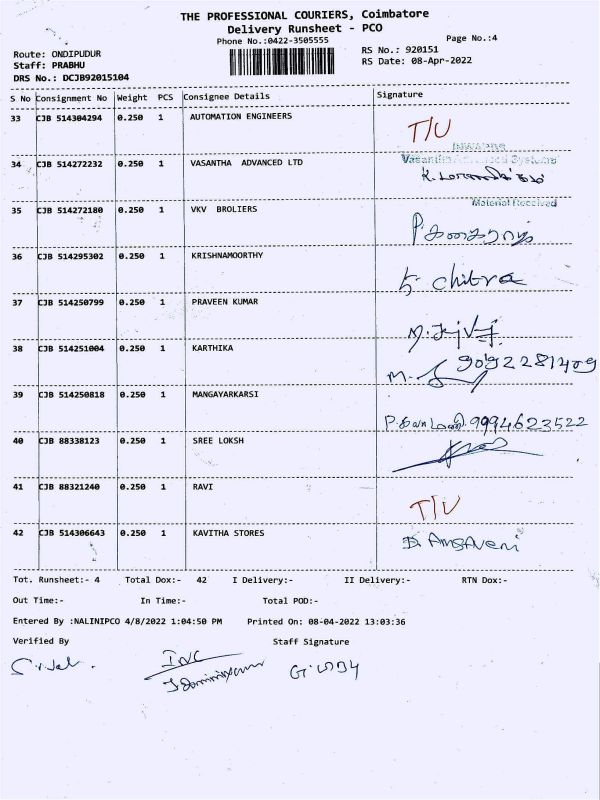 THE PROFESSIONAL COURIERS, Coimbatore
Delivery Runsheet - PCO
Phone No.:0422-3505555
Page No.:4
Route: ONDIPUDUR
RS No.: 920151
Staff: PRABHU
RS Date: 08-Apr-2022
DRS No.: DCJB92015104
S No Consignment No Weight PCS Consignee Details Signature
33 CJB 514304294 0.250 1 AUTOMATION ENGINEERS T/U
34 CJB 514272232 0.250 1 VASANTHA ADVANCED LTD
Vasantha Advanced Systems
35 CJB 514272180 0.250 1 VKV BROLIERS
Material Received
36 CJB 514295302 0.250 1 KRISHNAMOORTHY Chitra
37 CJB 514250799 0.250 1 PRAVEEN KUMAR
38 CJB 514251004 0.250 1 KARTHIKA
39 CJB 514250818 0.250 1 MANGAYARKARSI 9994623522
40 CJB 88338123 0.250 1 SREE LOKSH
41 CJB 88321240 0.250 1 RAVI T/U
42 CJB 514306643 0.250 1 KAVITHA STORES
Tot. Runsheet:- 4 Total Dox:- 42 I Delivery:- II Delivery:- RTN Dox:-
Out Time:- In Time:- Total POD:-
Entered By :NALINIPCO 4/8/2022 1:04:50 PM Printed On: 08-04-2022 13:03:36
Verified By Staff Signature